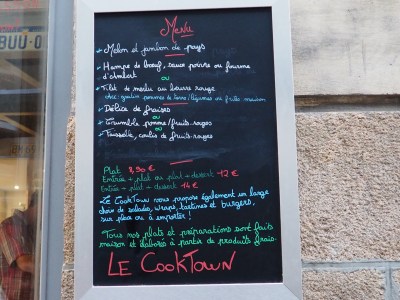 BUU·O
Menu
Melon et jambon de pays
Hampe de bœuf, sauce poivre ou fourme
d'ambert
ou
Filet de merlu au beurre rouge
avec: gratin pommes de terre/légumes ou frites maison
Délice de fraises
ou
Crumble pomme/fruits rouges
ou
Faisselle, coulis de fruits rouges
Plat 8,90 €
Entrée + plat ou plat + dessert 12 €
Entrée + plat + dessert 14 €
Le CookTown vous propose également un large
choix de salades, wraps, tartines et burgers,
sur place ou à emporter !
Tous nos plats et préparations sont faits
maison et élaborés à partir de produits frais.
LE COOKTOWN